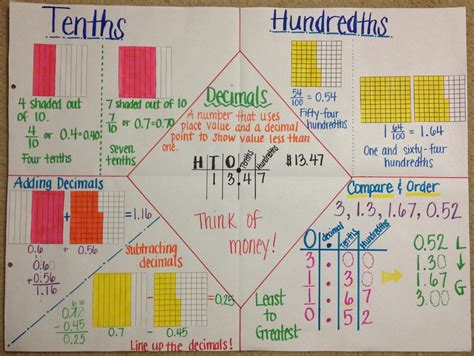 Tenths
4 shaded out
of 10.
4/10 or 0.4=0.40
Four tenths
7 shaded out of 10
7/10 or 0.7=0.70
Seven
tenths
Hundredths
54/100 = 0.54
Fifty-four
hundredths
1 64/100 = 1.64
One and sixty-four
hundredths
Decimals
A number that uses
place value and a decimal
point to show value less than
one.
H T O Tenths Hundredths
1 3 . 4 7
$13.47
Think of
money!
Adding Decimals
+ = 1.16
0.6 + 0.56
0.60
+0.56
1.16
Subtracting
decimals
- = 0.25
0.70
-0.45
0.25
0.7 - 0.45
Line up the decimals!
Compare & Order
3, 1.3, 1.67, 0.52
O decimal Tenths Hundredths
3 . 0 0
1 . 3 0
1 . 6 7
0 . 5 2
0.52 L
1.30
1.67
3.00 G
Least to
Greatest